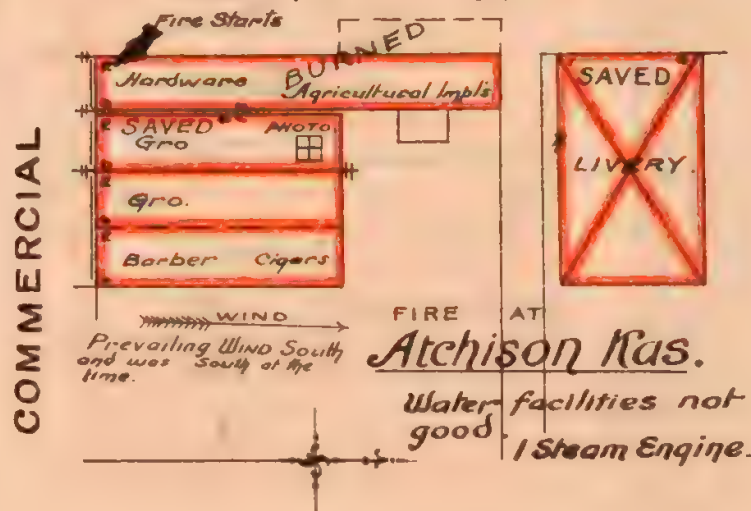 Fire Starts
BURNED
Hardware
Agricultural Impl's
SAVED
PHOTO
Gro
Gro.
Barber Cigars
SAVED
LIVERY.
COMMERCIAL
WIND
Prevailing WIND South
and was South at the
time.
FIRE AT
Atchison Kas.
Water facilities not
good
1 Steam Engine.